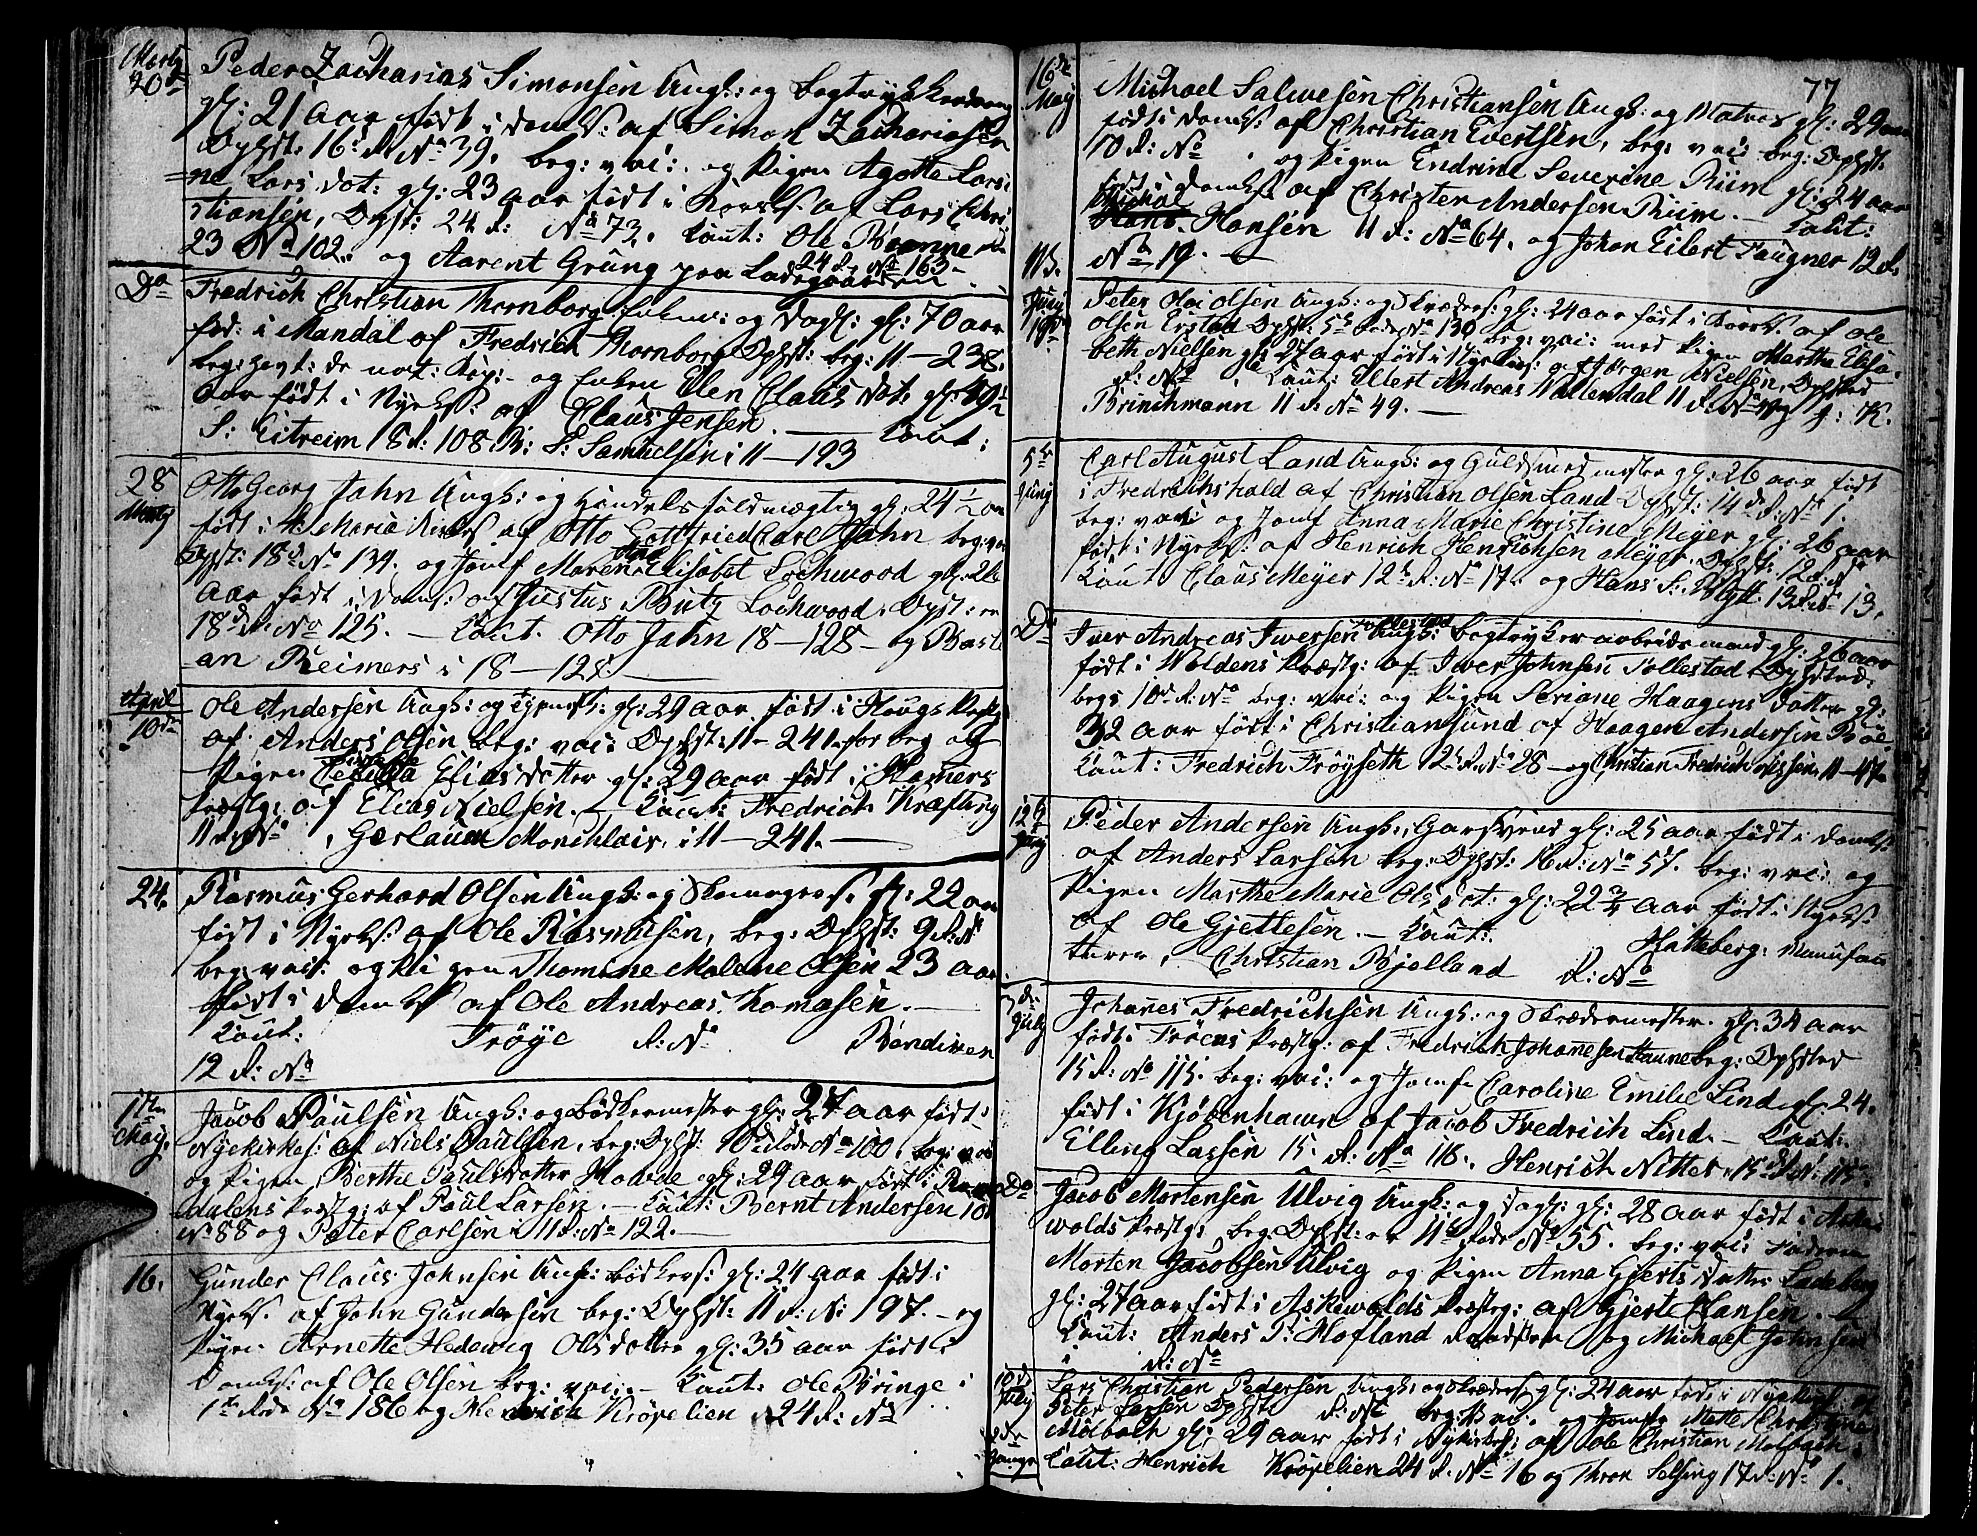 Marty
20de
Peder Zacharias Simonsen Ungk: og Bogtryk
gl: 21 aar født i Domk: af Simon Zachariasen
Ophst. 16 R. No 39. beg: vac: og Pigen Agothe Lars
ne Lars dot: gl: 23 aar født i Korsk: af Lars Chri
stiansen, Ophst: 24 R: No 73. Caut: Ole Rønne
23 No 102. og Aarent Grung paa Ladegaarden
24 R. No 163
Do
Fredrich Christian Thornborg Enkem: og Dagl: gl: 70 aar
fød: i Mandal af Fredrich Thornborg Ophst: beg: 11 – 238.
beg: havt: de nat: Kop: og Enken Elen Claus dot: gl: 49½
aar født i Nyek: af Claus Jensen. — Caut:
S: Eitreim 18 R: 108 R: S: Samuelsen i 11 – 193
28
Marty
Otto Georg Jahn Ungk: og Handels fuldmægtig gl: 24½ aar
født i Maria af Otto Gottfried Carl Jahn beg: vac
Ophst: 18 R No 134. og Jomf Maren Elisabet Lochwood gl: 26
aar født i Domk: af Justus Butz Lochwood. Ophst:
18 R. No 125. — Caut. Otto Jahn 18 – 128 – og Basti
an Reimers i 18 – 128.
April
10de
Ole Andersen Ungk: og gl: 29 aar født i Hougs Præstg
af Anders Olsen beg: vac: Ophst: 11 – 241. og
Pigen Elias dotter gl: 29 aar født i Hamers
Præstg: af Elias Nielsen. — Caut: Fredrich Kræfting
11 R: No , Gerlaum Monchlair, i 11 – 241. —
24.
Rasmus Gerhard Olsen Ungk: og Skomagers: gl: 22 aar
født i Nyek: af Ole Rasmusen, beg: Ophst: 9 R: No
beg: vac: og Pigen Thomine Malene Olsen 23 aar
født i Domk af Ole Andreas Tomasen. —
Caut: Frøye R: No Bendixen
12 R: No
1ste
May.
Jacob Paulsen Ungk: og Bødkermester gl: 27 aar født i
Nyekirkes: af Niels Paulsen, beg: Ophst: 10 Rode No 100. beg: vac
og Pigen Berthe Paulsdotter Hovde gl: 29 aar født i Roms
dalens Præstg: af Paul Larsen. — Caut: Bernt Andersen 10
No 88 og Peter Carlsen i 11 R: No 122. —
16.
Gunder Claus Johnsen Ungk: Bødkers: gl: 24 aar født i
Nyek: af John Gundersen beg: Ophst: 11 R: No 197. – og
Pigen Arnette Hedewig Olsdotter gl: 35 aar født i
Domk: af Ole Olsen beg: vac: — Caut: Ole Bringe i
1ste Rode No 186 og Henrich Krøpelien 24 R: No
77
16de
May
Michael Salvesen Christiansen Ungk: og Matros gl: 29 aar
født i Domk: af Christian Evertsen, beg: vac: beg: Ophst:
10 R: No . og Pigen Endrine Severine Riim gl: 24 aar
født i Domk af Christen Andersen Riim. — Caut:
Michal
Hans Hansen 11 R: No 64. og Johan Eilert Faugner 12 R.
No 19. —
Juny
19de
Peter Olai Olsen Ungk: og Skræders: gl: 24 aar født i Korsk: af Ole
Olsen Erstad Ophst: 5te Rode No 130 beg: vac: med Pigen Marthe Elisa
beth Nielsen gl: 27 aar født i af Jørgen Nielsen, Ophsted
R: No . Caut: Ellert Andreas Wallendal 11 R: No 49 og J: K.
Brinchmann 11 R: No 49. —
5te
Juny
Carl August Land Ungk: og Guldsmedmester gl: 26 aar født
i Fredrichshald af Christian Olsen Land Ophst: 14 R: No 1.
beg: vac: og Jomf Anna Marie Christine Meyer gl: 26 aar
født i Nyek: af Henrich Henrichsen Meyer. Ophst: 12 R: No
Caut: Claus Meyer 12 R: No 17. og Hans S: Blytt. 13 R: No 13.
Do
Iver Andreas Iversen Tollestad Ungk: Bogtrykker arbeidsmand gl: 26 aar
født i Woldens Præstg: af Iver Johnsen Tollestad Ophsted:
begs 10 R: No beg: vac: og Pigen Seriane Haagens datter gl:
32 aar født i Christiansund af Haagen Andersen Bøe.
Caut: Fredrich Frøyseth 12 R: No 28 – og Christian Fredrich Nissen, 11 – 47.
12te
Juny
Peder Andersen Ungk: Garsvend gl: 25 aar født i Domk:
af Anders Larsen beg: Ophst: 16 R: No 57. beg: vac: og
Pigen Marthe Marie Ols dot: gl: 22¾ aar født i Nyek:
af Ole Gjertesen. — Caut: Hatteberg: Manufac
turer, Christian Bjelland R: No
3de
July
Johanes Fredrichsen Ungk: og Skrædermester. gl: 34 aar
født i Frøens Præstg: af Fredrich Johannesen Haune beg: Ophsted
15 R: No 115. beg: vac: og Jomf: Caroline Emilie Lind gl: 24.
født i Kjøbenhawn af Jacob Fredrich Lind. — Caut:
Elling Lassen 15. R: No 116., Henrich Nitter, 15 R: No 115.
Do
Jacob Mortensen Ulvig Ungk: og Dagl: gl: 28 aar født i Aske
wolds Præstg: beg: Ophst: er 11te Rode No 55. beg: vac: Faderen
Morten Jacobsen Ulvig og Pigen Anna Gjerts Datter Ladeberg
gl: 27 aar født i Askewolds Præstg: af Gjert Hansen. —
Caut: Anders P: Hofland og Michael Johnsen
i R: No
10de
July
Lars Christian Pedersen Ungk: og Skræders: gl: 24 aar født i Nyekirk: af
Peter Larsen Ophst: R: No beg: vac. og Jomfr Mette
Mølbach gl: 29 aar født i Nykirkes: af Ole Christian Mølbach.
Caut: Henrich Krøpelien 24 R: No 16 og Thron Selsing 17 R: No 1.